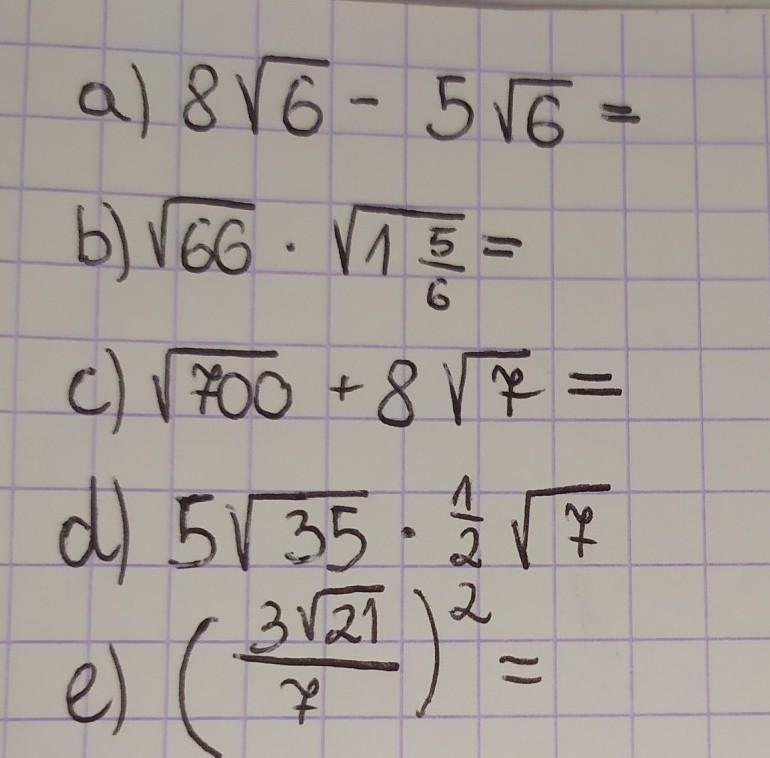 a) 8√6 - 5√6 =
b) √66 · √1 5/6 =
c) √700 + 8√7 =
d) 5√35 · 1/2 √7
e) (3√21/7)² =